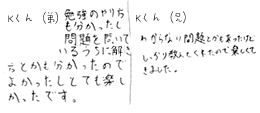 Kくん（弟）
勉強のやり方
も分かったし
問題を問いて
いるうちに解き
方とかも分かったので
よかったしとても楽し
かったです。
Kくん（兄）
わからない問題とかもあったけど
しっかり教えてくれたので楽しくで
きました。